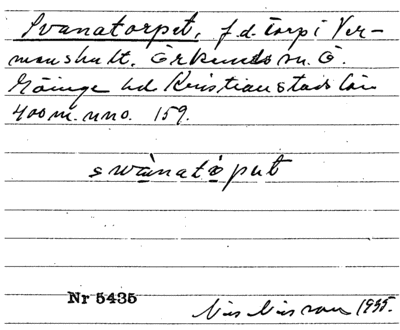 Svanatorpet, f.d. torp i Ver-
manshult. Örkends sn. Ö.
Göinge hd Kristianstads län
400 m. nno. 159.
swànatòput
Nr 5435
Nils Nilsson 1935.